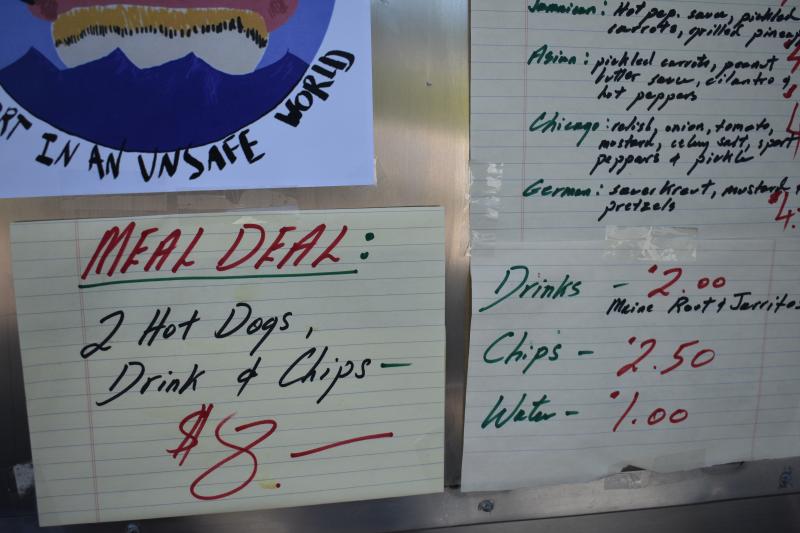 RT IN AN UNSAFE WORLD
MEAL DEAL:
2 Hot Dogs,
Drink & Chips —
$8.—
Jamaican: Hot pep. sauce, pickled
carrots, grilled pineap
Asian: pickled carrots, peanut
butter sauce, cilantro &
hot peppers
Chicago: relish, onion, tomato,
mustard, celery salt, sport
peppers & pickle
German: sauerkraut, mustard &
pretzels $4.
Drinks - $2.00
Maine Root & Jarritos
Chips - $2.50
Water - $1.00